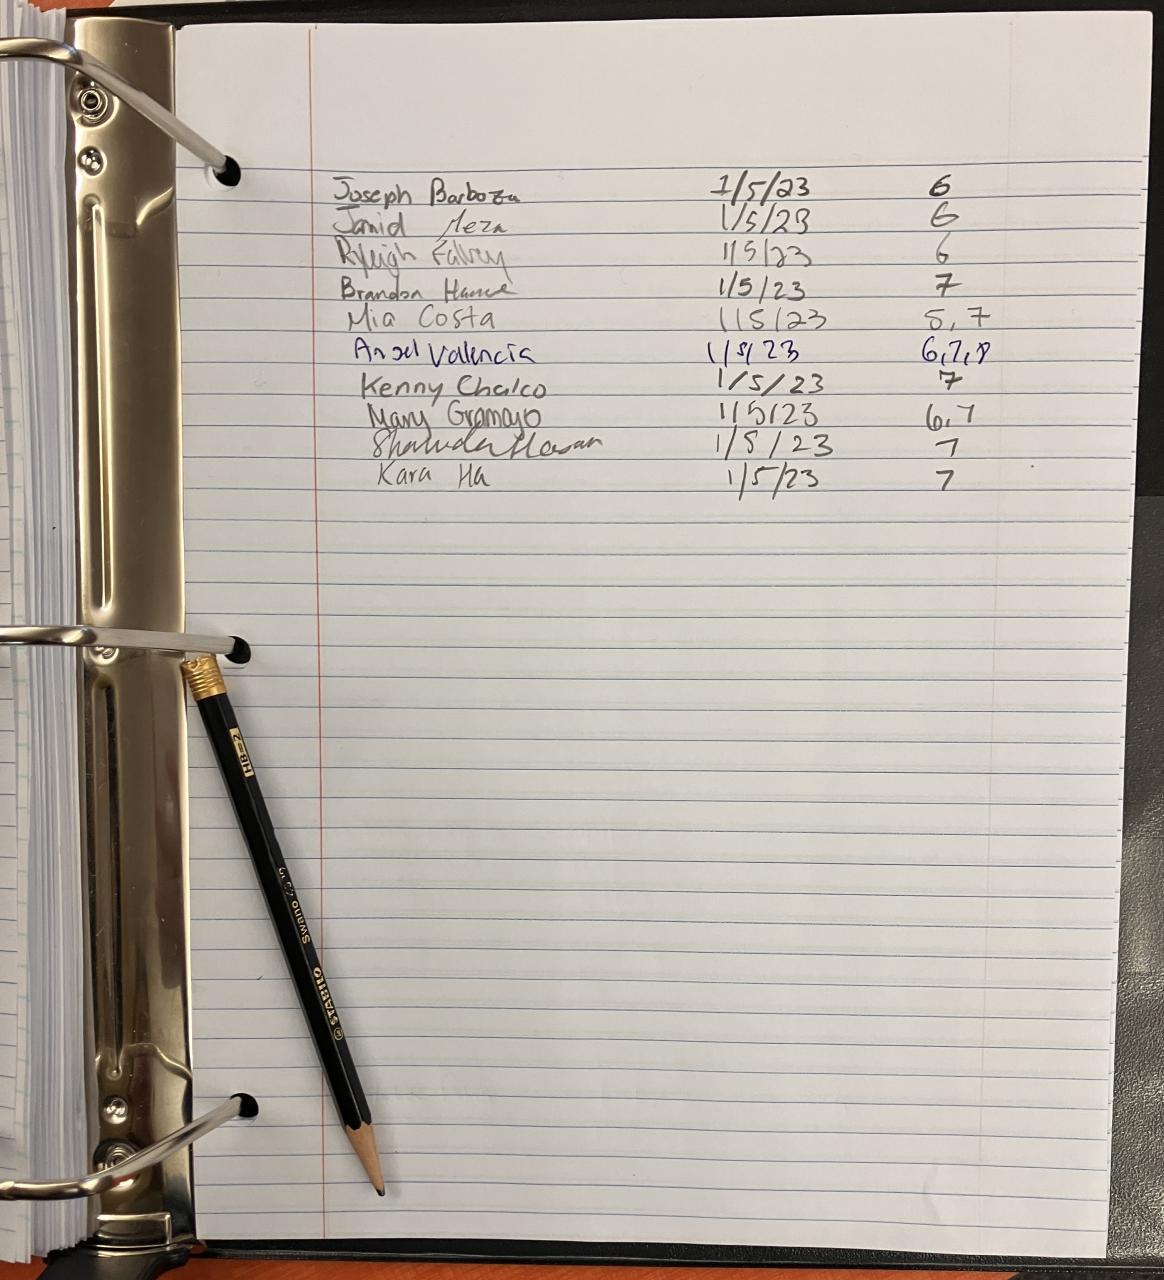 Joseph Barboza 1/5/23 6
Jamid Meza 1/5/23 6
Ryleigh Falvey 1/5/23 6
Brandon 1/5/23 7
Mia Costa 1/5/23 5, 7
Angel Valencia 1/5/23 6,7,8
Kenny Chalco 1/5/23 7
Mary Gramayo 1/5/23 6,7
1/5/23 7
Kara Ha 1/5/23 7
HB=2
Swano
STABILO